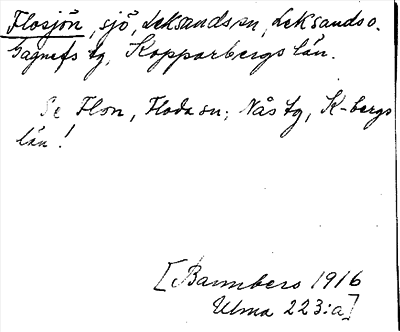 Flosjön, sjö, Leksands sn, Leksands o.
Gagnefs tg, Kopparbergs län.
Se Flon, Floda sn; Nås tg, K-bergs
län!
[Bannbers 1916
Ulma 223:a]